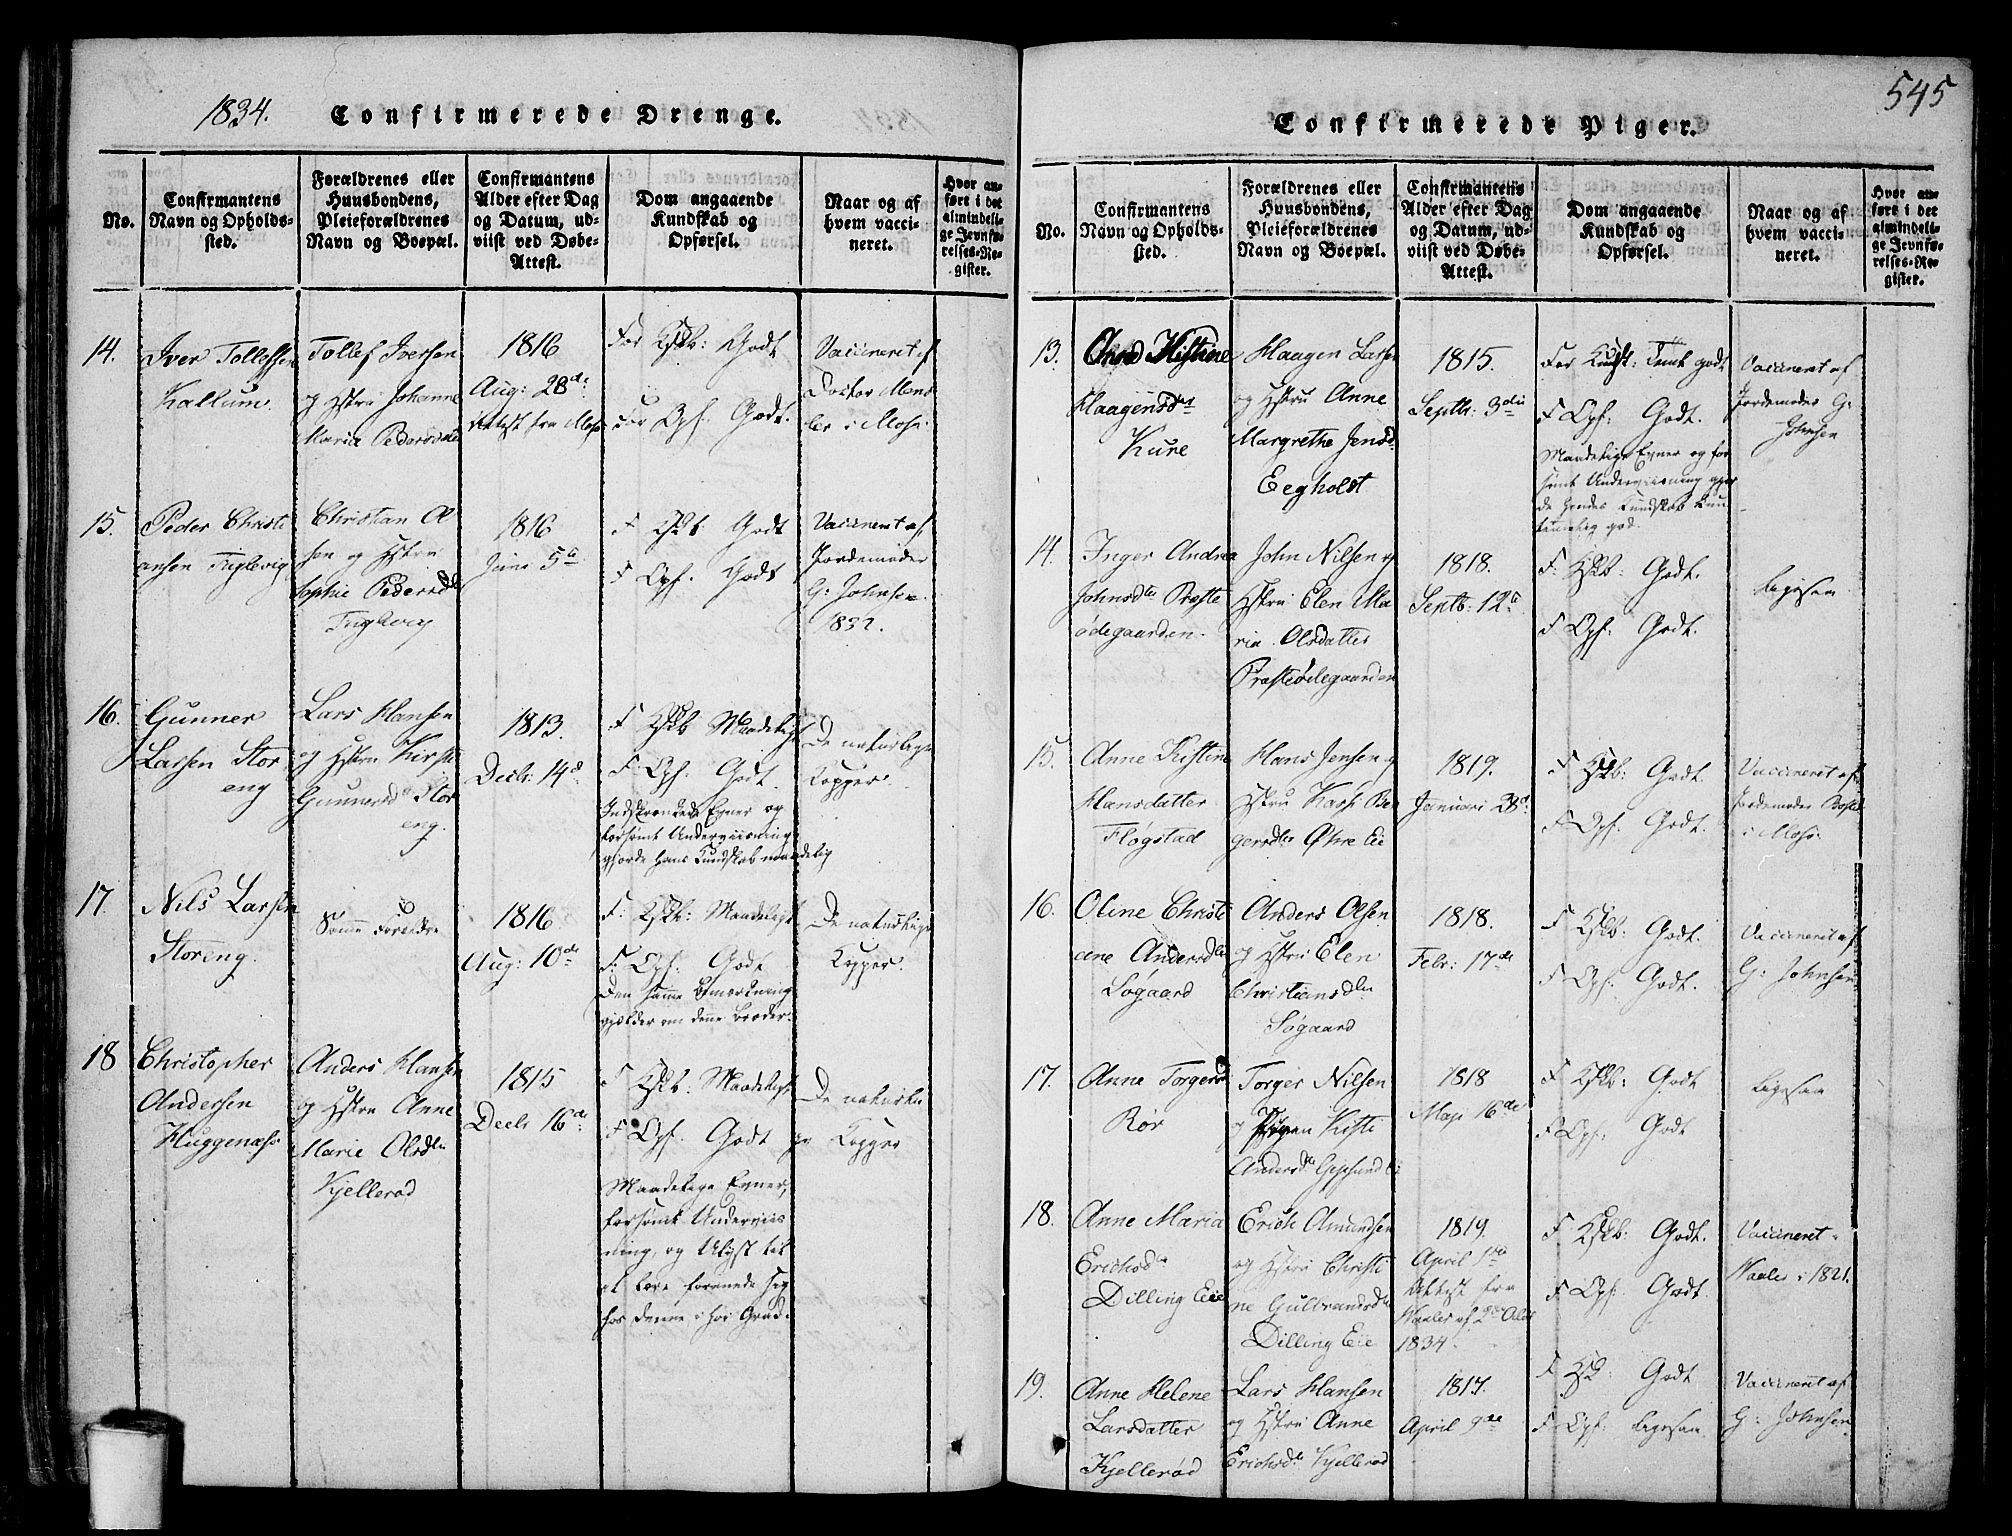 1834.
Confirmerede Drenge.
No.
Confirmantens
Navn og Opholds-
sted.
Forældrenes eller
Huusbondens,
Pleieforældrenes
Navn og Boepæl.
Confirmantens
Alder efter Dag
og Datum, ud-
viist ved Døbe-
Attest.
Dom angaaende
Kundskab og
Opførsel.
Naar og af
hvem vacci-
neret.
Hvor an-
ført i det
almindeli-
ge Jevnfø-
relses-Re-
gister.
14.
Iver Tollefsen
Kallum.
Tollef Iversen
og Hstru Johanne
Maria Pedersdtr
1816
Aug: 28de
Attest fra Moss
For Kskb: Godt
For Opf. Godt.
Vaccineret af
Doctor
i Moss.
15.
Peder Christi
ansen Tuglevig
Christian Ol
sen og Hstru
Sophie Pedersdtr
Tuglevig
1816
Juni 5te
F Kskb Godt
F Opf. Godt
Vaccineret af
Jordemoder
G: Johnsen
1832.
16.
Gunner
Larsen Stor
eng
Lars Hansen
og Hstru Kirsti
Gunnersdtr Stor
eng.
1813.
Decbr: 14de
F Kskb Maadeligt
F. Opf. Godt.
Indskrænkede Evner og
forsømt Underviisning
gjorde hans Kundskab maadelig
De naturlige
Kopper.
17.
Nils Larsen
Storeng.
Samme Forældre
1816
Aug: 10de
F: Kskb: Maadeligt
F: Opf: Godt
Den samme Bemærkning
gjælder om denne Broder.
De naturlige
Kopper.
18
Christopher
Andersen
Huggenæss
Anders Hansen
og Hstru Anne
Marie Olsdtr
Kjellerød
1815
Decbr 16de
F Kskb: Maadeligt
F Opf. Godt
Maadelige Evner,
forsømt Underviis
ning, og Ulyst til
at lære forenede sig
hos denne i høi Grad.
De naturli
ge Kopper
545
Confirmerede Piger.
No.
Confirmantens
Navn og Opholds-
sted.
Forældrenes eller
Huusbondens,
Pleieforældrenes
Navn og Boepæl.
Confirmantens
Alder efter Dag
og Datum, ud-
viist ved Døbe-
Attest.
Dom angaaende
Kundskab og
Opførsel.
Naar og af
hvem vacci-
neret.
Hvor an-
ført i det
almindeli-
ge Jevnfø-
relses-Re-
gister.
13.
Kistine
Haagensdtr
Kure
Haagen Larsen
og Hstru Anne
Margrethe Jensdtr
Eegholdt
1815.
Septb: 3die
For Kskb: Temt godt
F Opf: Godt.
Maadelige Evner og for
sømt Underviisning gjor
de hendes Kundskab kun
temmelig god.
Vaccineret af
Jordemoder G:
Johnsen
14.
Inger Andrea
Johnsdtr Præste
ødegaarden.
John Nilsen og
Hstru Elen Ma
ria Olsdatter
Præsteødegaarden
1818.
Septb: 12te
F: Kskb: Godt.
F Opf: Godt.
Ligesaa
15.
Anne Kistine
Hansdatter
Fløgstad
Hans Jensen og
Hstru
gersdtr Øhre Eie
1819.
Januari 28de
F Kskb: Godt.
F Opf: Godt.
Vaccineret af
Jordemoder
i Moss.
16.
Oline Christi
ane Andersdtr
Søgaard
Anders Olsen
og Hstru Elen
Christiansdtr
Søgaard
1818.
Febr: 17de
F Kskb: Godt.
F Opf: Godt.
Vaccineret af
G: Johnsen
17.
Anne Torgersd
Rør
Torger Nilsen
og Kisti
Andersdtr
1818
May 16de
F Kskb: Godt
F Opf: Godt
Ligesaa
18.
Anne Maria
Erichsdtr
Dilling Eie
Erich Amundsen
og Hstru Christi
ne Gulbrandsdtr
Dilling Eie
1819.
April 1ste
Attest fra
Waaler af 2den
1834.
F Kskb: Godt.
F Opf: Godt.
Vaccineret
Waaler i 1821.
19.
Anne Helene
Larsdatter
Kjellerød
Lars Hansen
og Hstru Anne
Erichsdtr Kjellerød
1817.
April 9de
F Kskb Godt
F Opf: Ligesaa
Vaccineret af
G: Johnsen